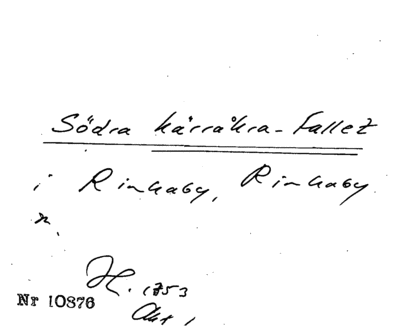 Södra kärråkra-fallet
i Rinkaby, Rinkaby
n.
H. 1753
Akt 1
Nr 10876